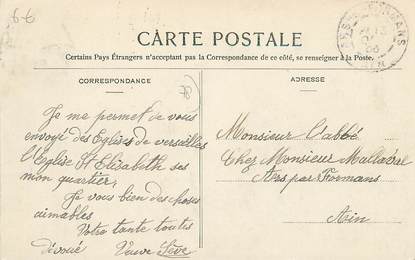 6 €
CARTE POSTALE
Certains Pays Étrangers n'acceptant pas la Correspondance de ce côté, se renseigner à la Poste.
CORRESPONDANCE
Je me permet de vous
envoyé des Eglises de versailles
l'Eglise St Elizabeth ses
mon quartier,
Je vous bien des choses
aimables
Votre tante toute
dévoué Veuve
ADRESSE
Monsieur l'abbé
Chez Monsieur
Ars par Formans
Ain